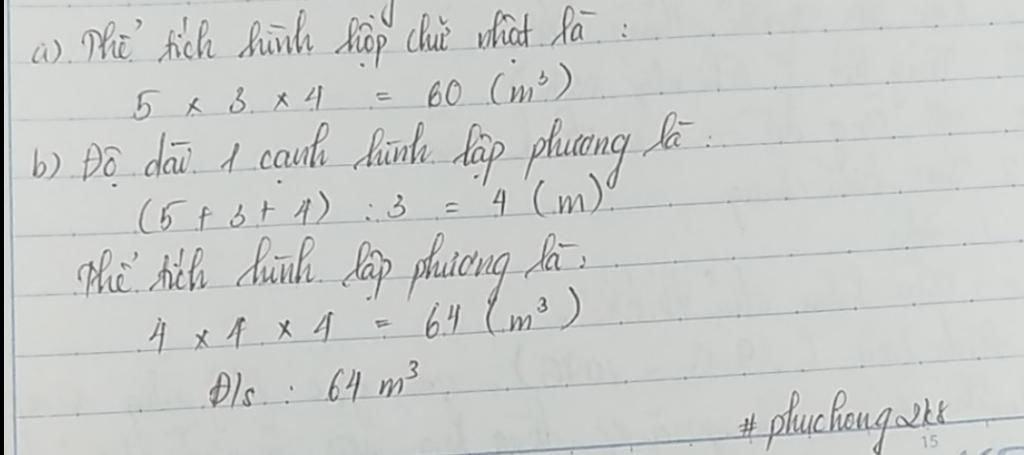 a) Thể tích hình hộp chữ nhật là :
5 x 3 x 4 = 60 (m³)
b) Độ dài 1 cạnh hình lập phương là :
(5 + 3 + 4) : 3 = 4 (m)
Thể tích hình lập phương là :
4 x 4 x 4 = 64 (m³)
Đ/s : 64 m³
# phuchong2k8
15